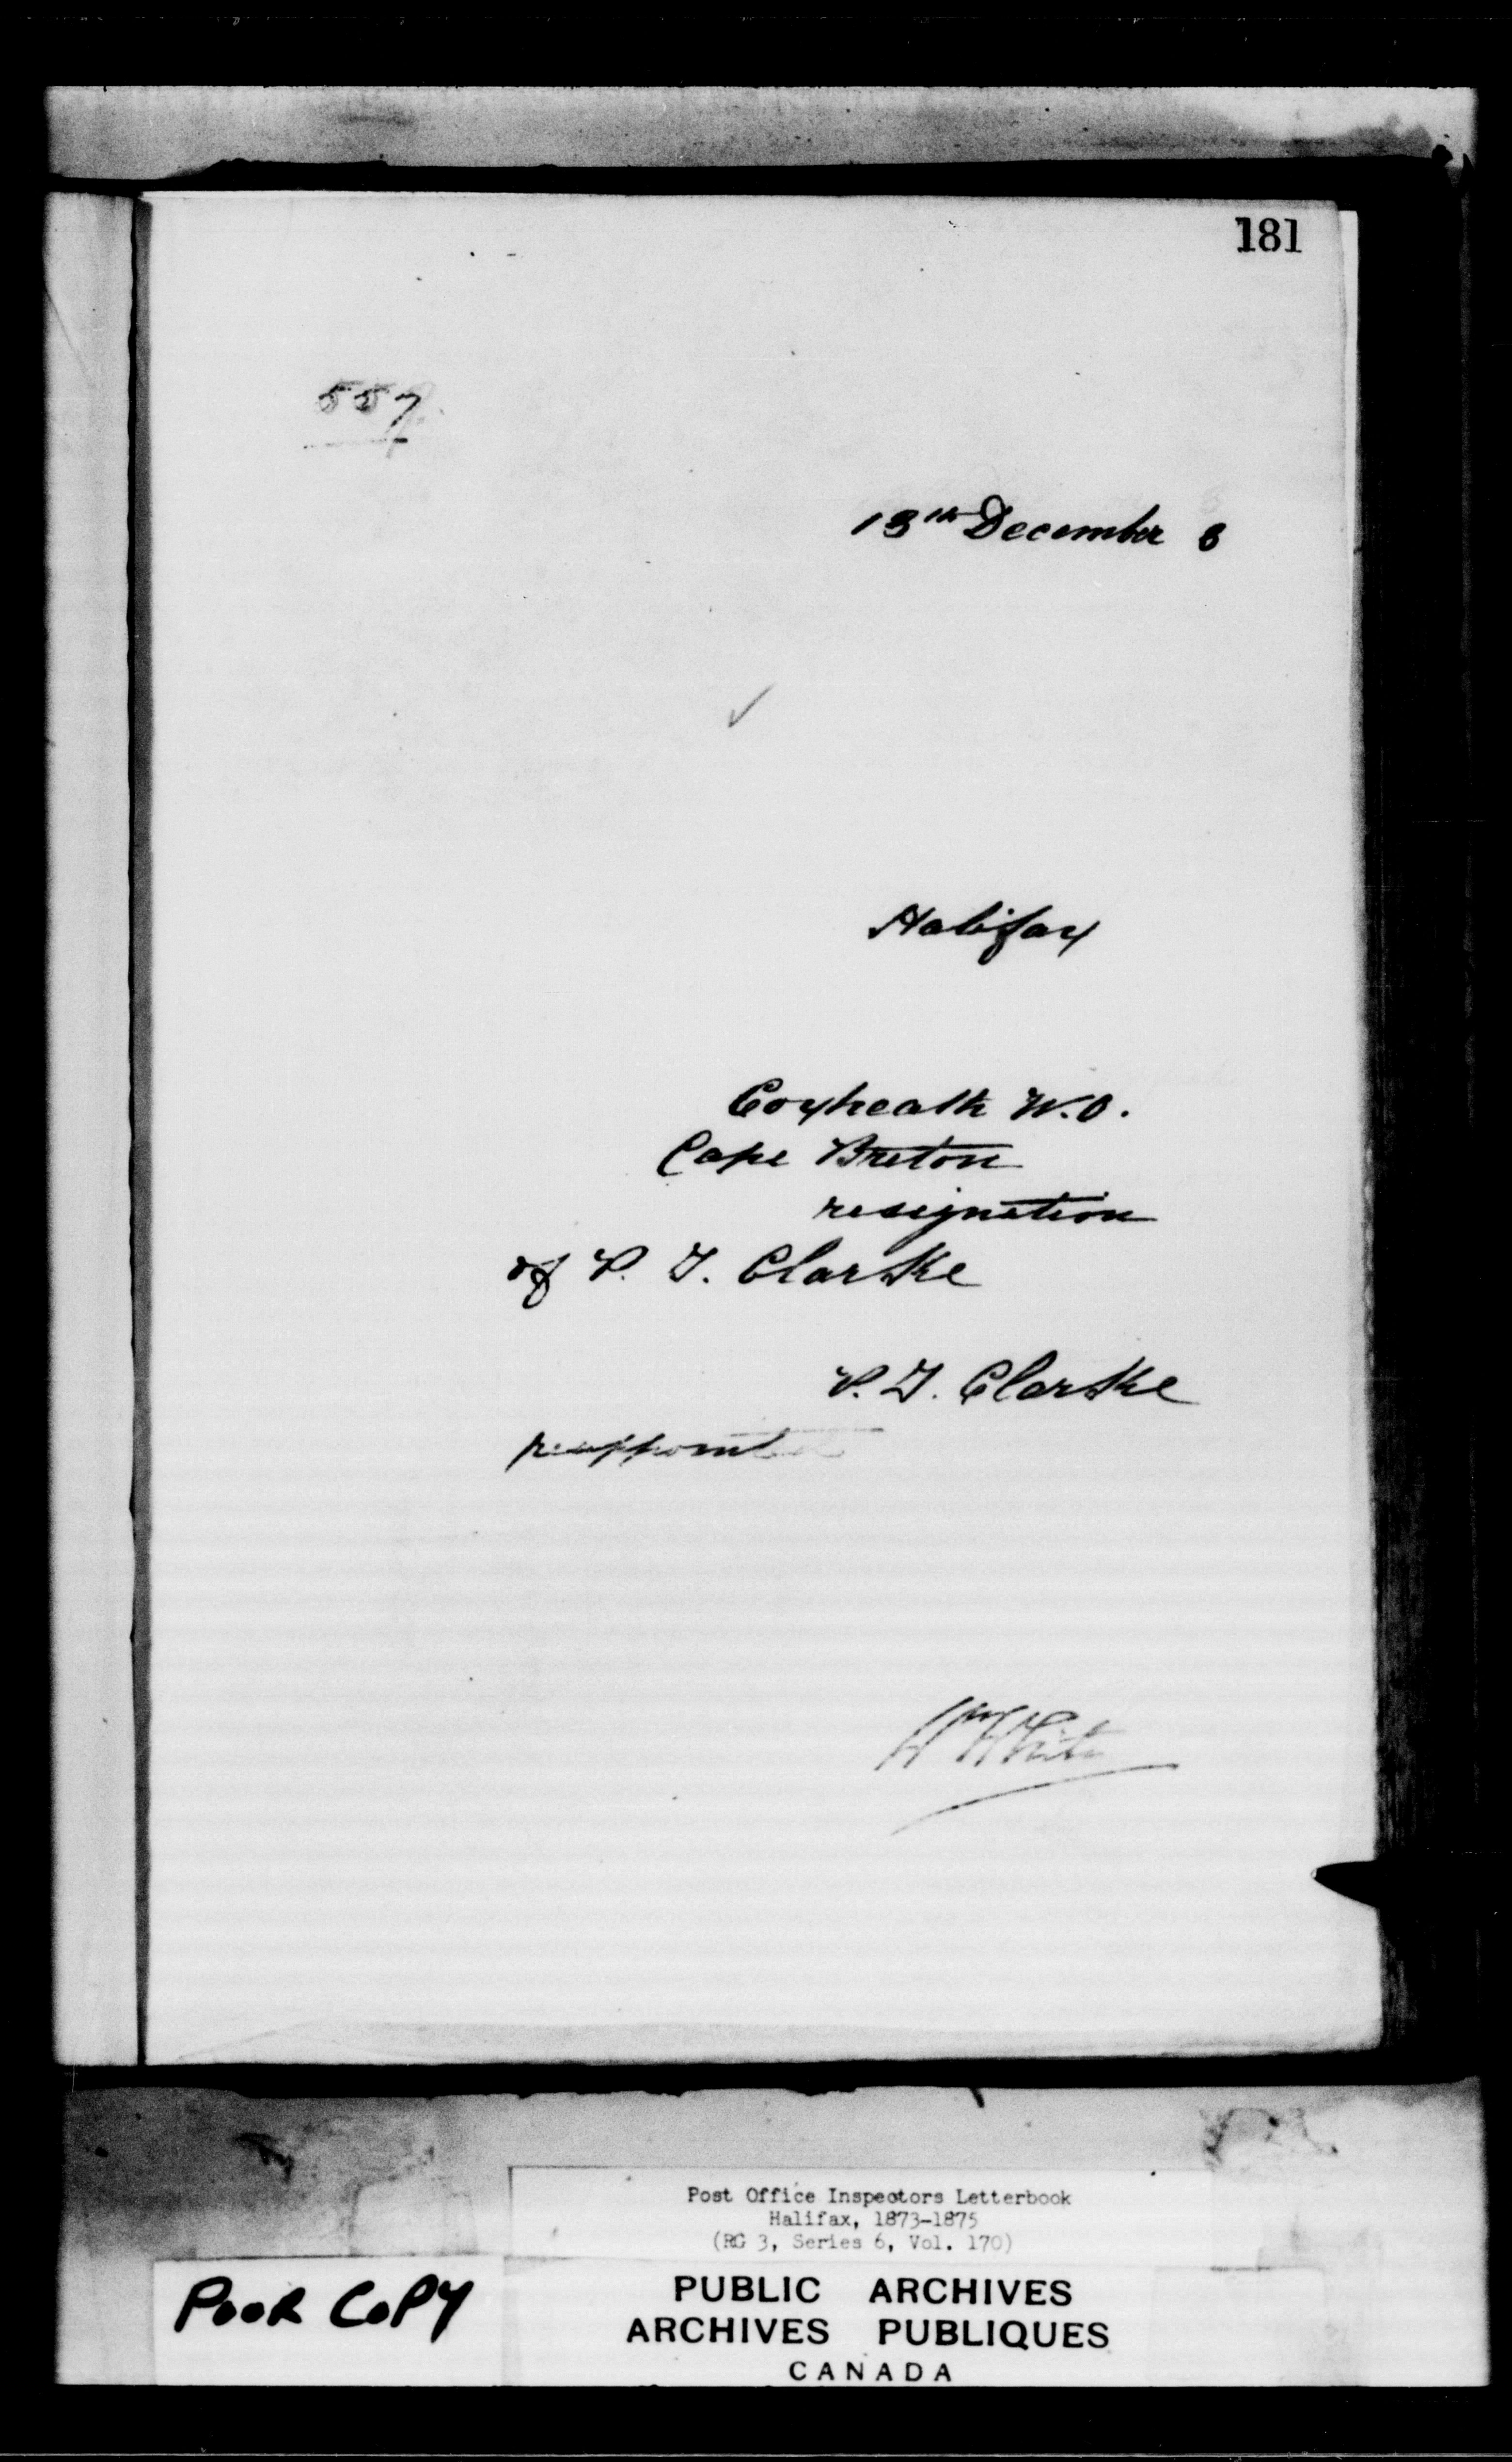 181
557
13th December 3
Halifax
Coxheath W.O.
Cape Breton
resignation
of P. T. Clarke
P. T. Clarke
reappointed
Wm White
Post Office Inspectors Letterbook
Halifax, 1873-1875
(RG 3, Series 6, Vol. 170)
POOR COPY
PUBLIC ARCHIVES
ARCHIVES PUBLIQUES
CANADA